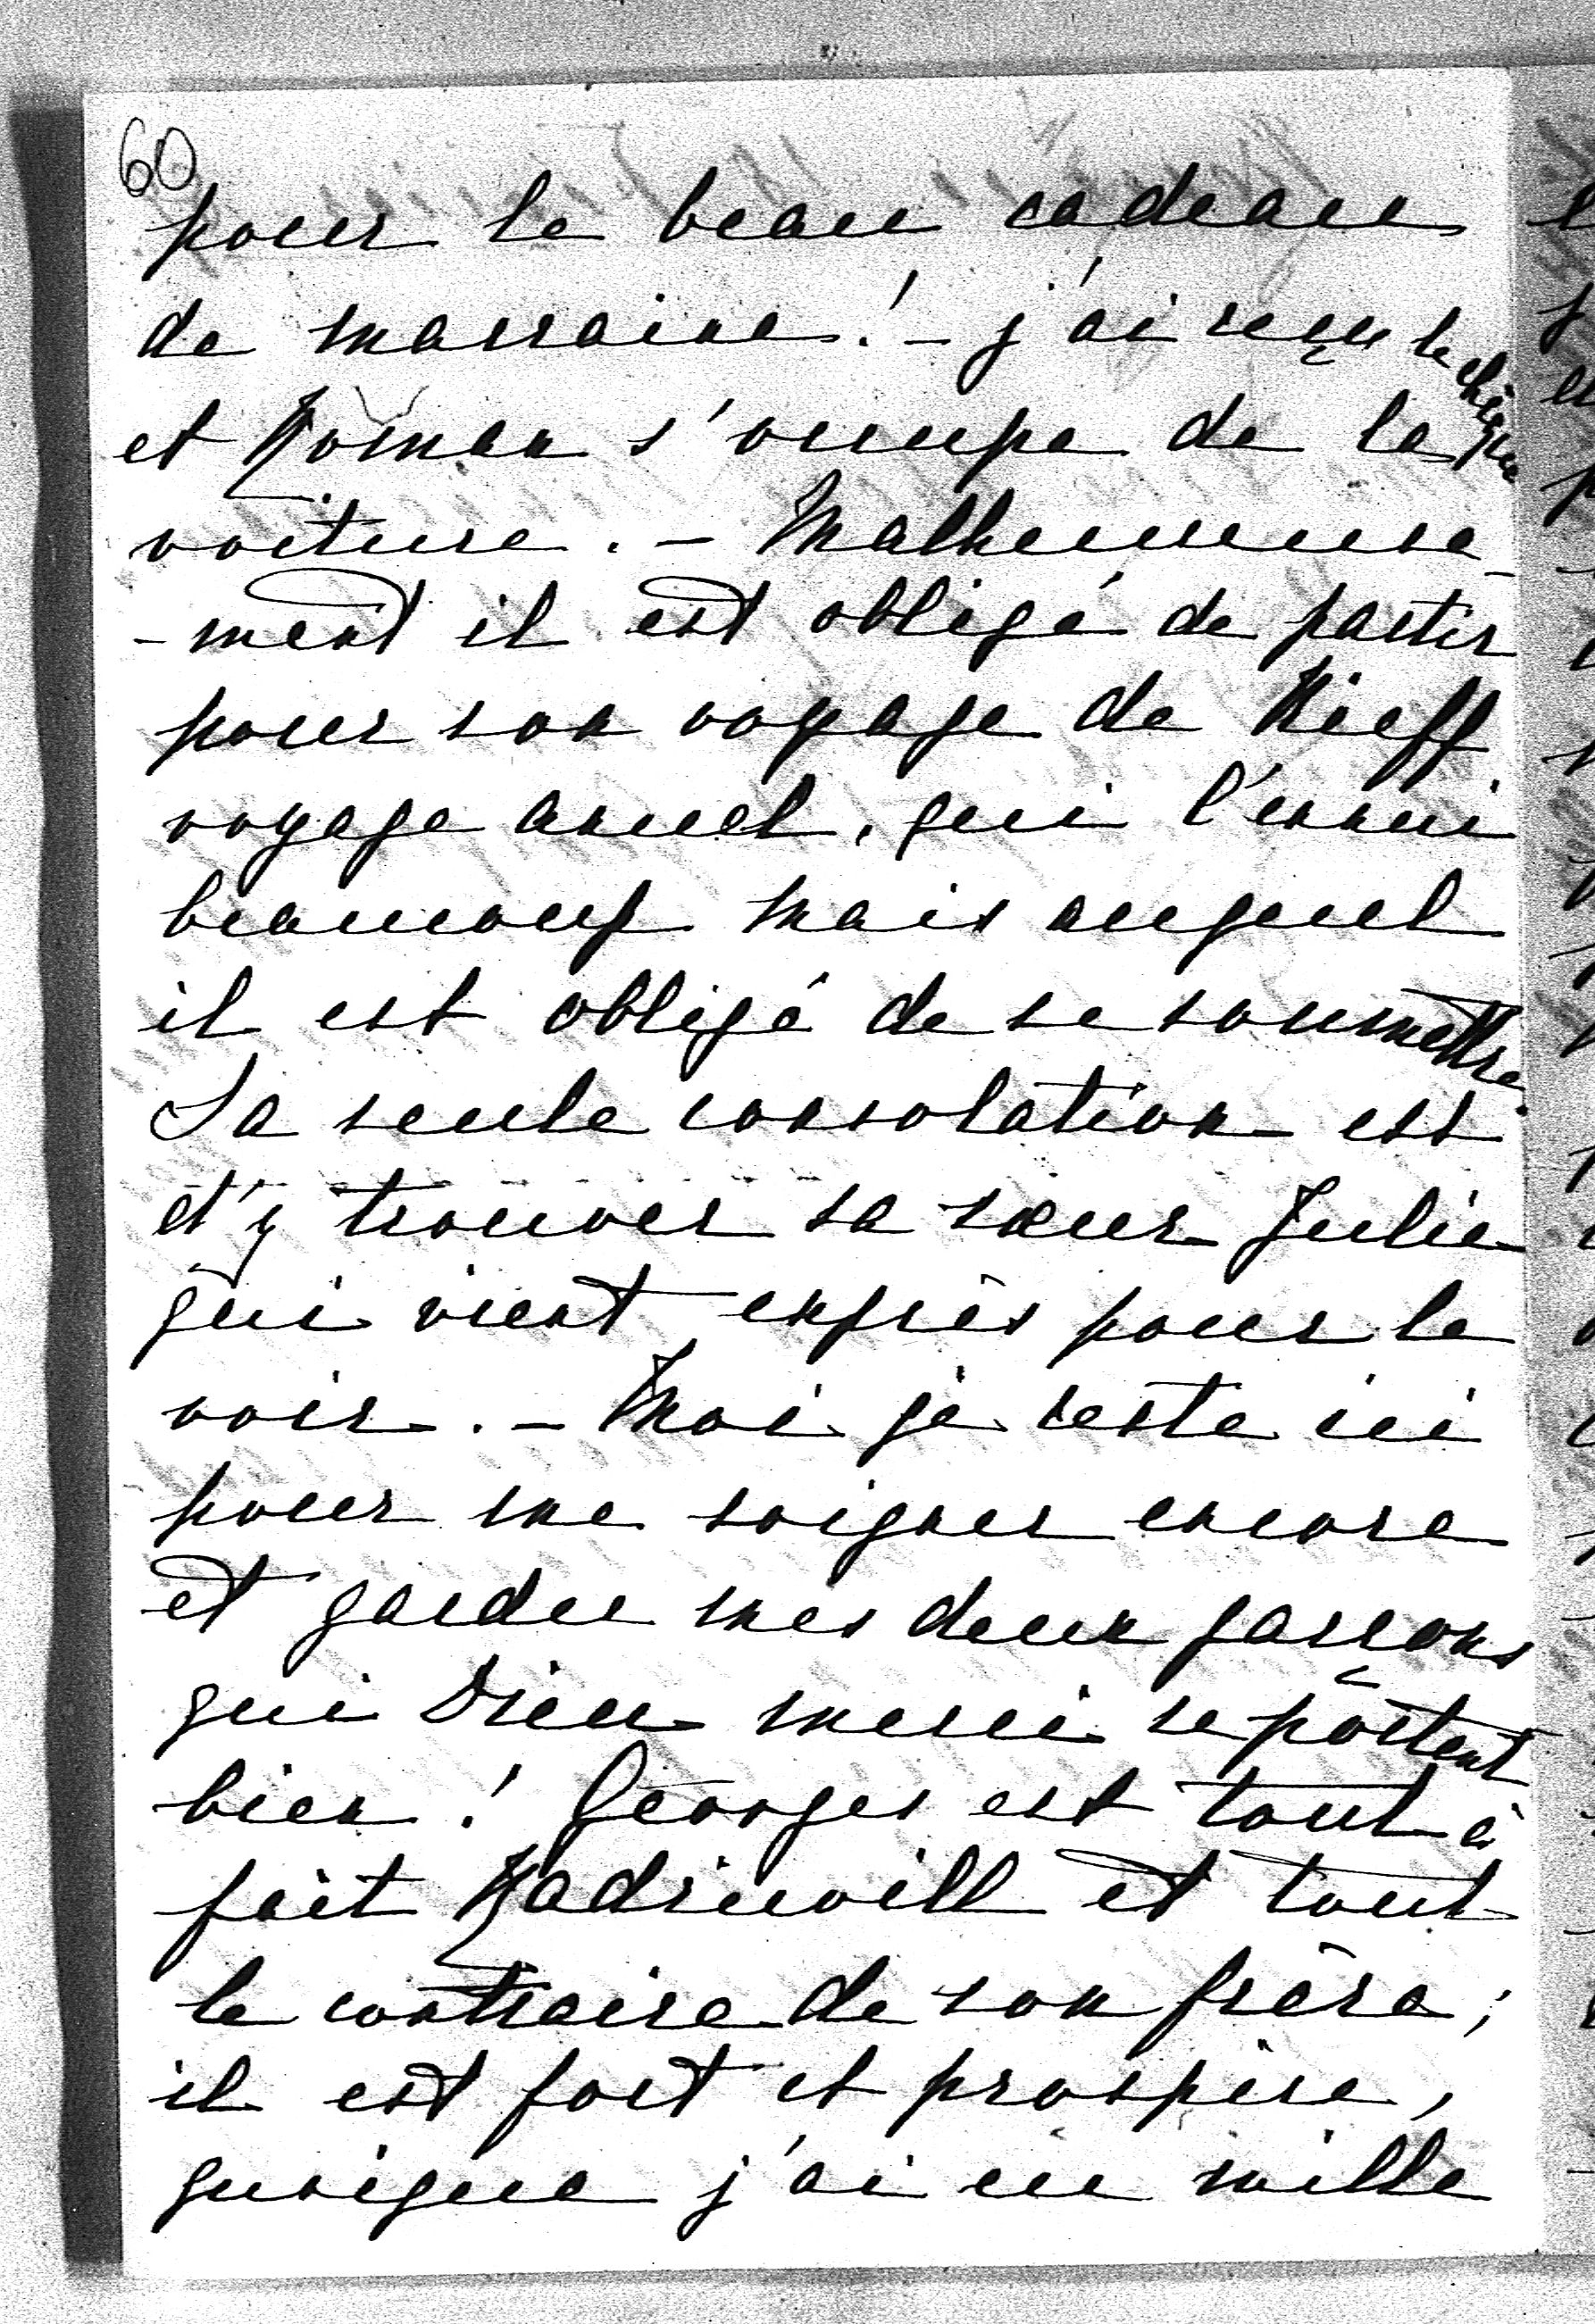 60
pour le beau cadeau
de marraine! - j'ai reçu le chèque
et Roman s'occupe de la
voiture. - Malheureuse-
-ment il est obligé de partir
pour son voyage de Kieff
voyage anuel, qui l'ennui
beaucoup mais auquel
il est obligé de se soumettre.
Sa seule consolation est
d'y trouver sa sœur Julie
qui vient exprès pour le
voir. - Moi je reste ici
pour me soigner encore
et garder mes deux garçons
qui Dieu merci se portent
bien! Georges est tout à
fait Radziwill et tout
le contraire de son frère;
il est fort et prospère,
quoique j'ai eu mille